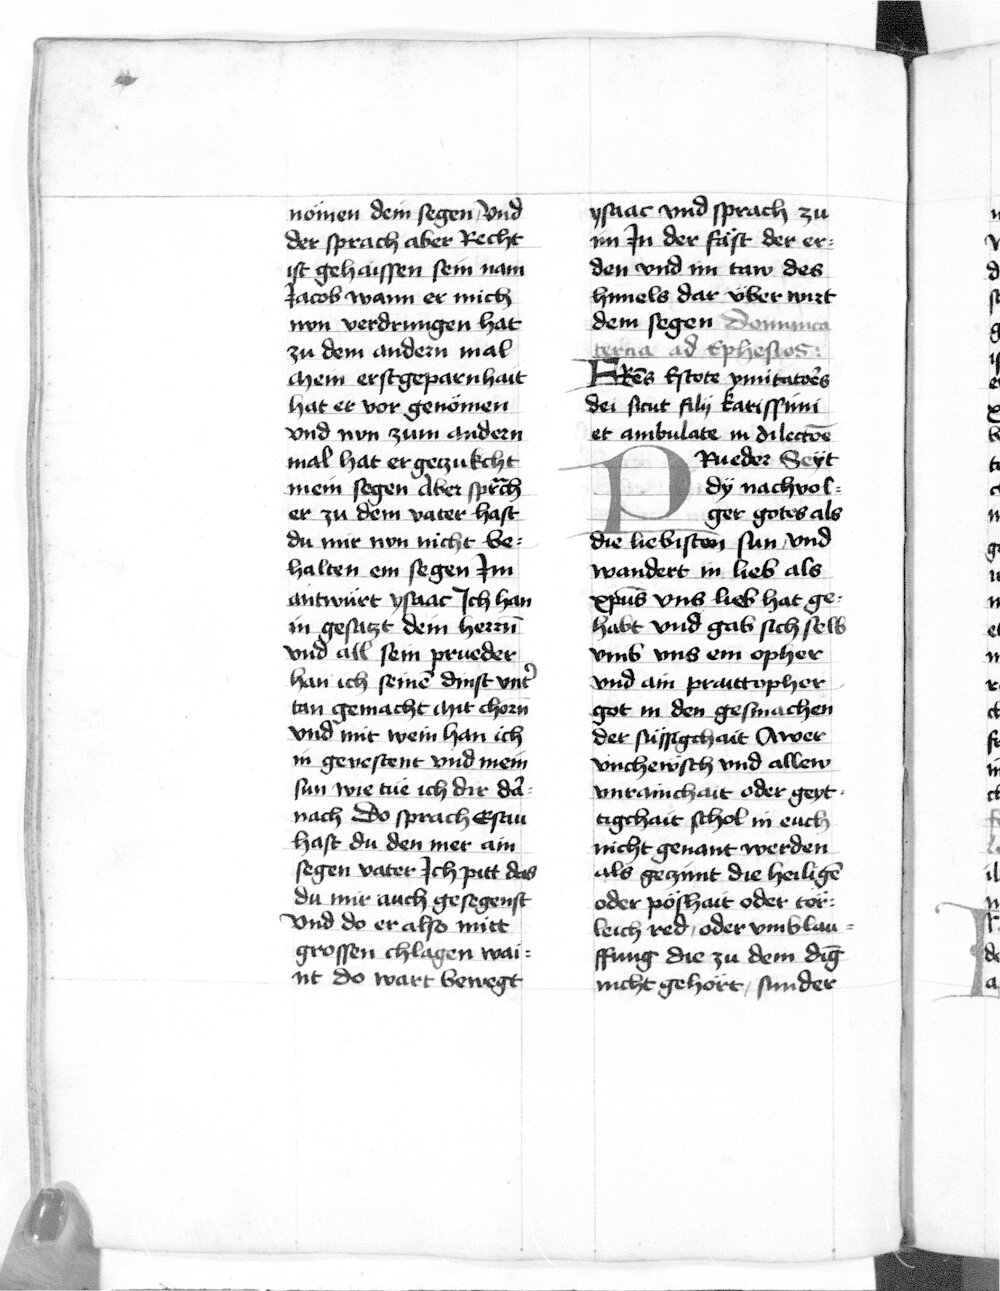 nömen dein segen / Vnd
der sprach aber Recht
ist gehaissen sein nam
Jacob wann er mich
nvn verdrungen hat
zu dem andern mal
mein erstgeparnhait
hat er vor genömen
vnd nvn zum andern
mal hat er geczukcht
mein segen Aber sprach
er zu dem vater hast
du mir nvn nicht be=
halten ein segen Im
antwürt ysaac Ich han
in gesaczt dein herrn
vnd all sein prueder
han ich seinē dinst vnt'
tan gemacht mit chorn
vnd mit wein han ich
in gevestent vnd mein
sun wie tüe ich dir dā=
nach Do sprach Esau
hast du den mer ain
segen vater Ich pitt das
du mir auch gesegenst
Vnd do er also mitt
grossen chlagen wai=
nt do wart bewegt
ysaac vnd sprach zu
im In der fäist der er=
den vnd im taw des
himels dar über wirt
dein segen Dominica
tercia ad Ephesios:
FRēs Estote ymitatores
dei sicut filij karissimi
et ambulate in dilectōe
PRueder Seyt
dy nachvol=
ger gotes als
die liebisten sun / vnd
wandert in lieb als
xp̄us vns lieb hat ge=
habt vnd gab sich selb
vmb vns ein opher
vnd ain praittopher
got in den gesmachen
der süssigchait Awer
vnchewsch vnd allew
vnrainchait oder geyt=
tigchait schol in euch
nicht genant werden
als geczimt die heiligē
oder pöshait oder tör=
leich red / oder vmblau=
ffung die zu dem dīg
nicht gehört / sunder